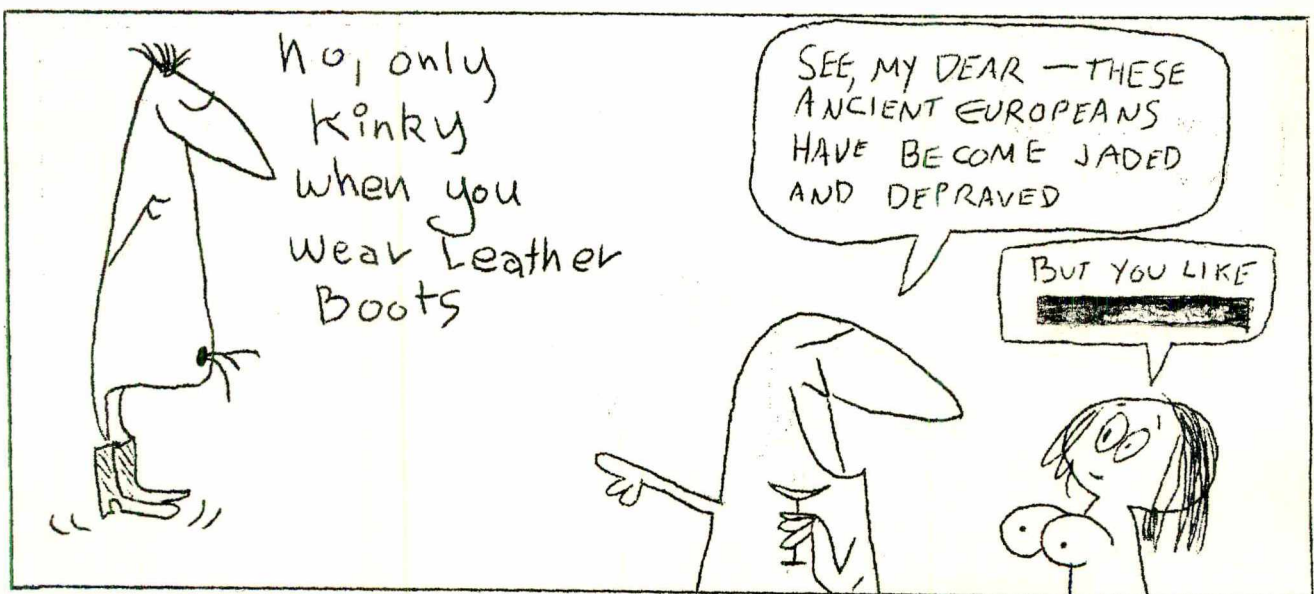 no, only
Kinky
when you
wear Leather
Boots
SEE, MY DEAR — THESE
ANCIENT EUROPEANS
HAVE BECOME JADED
AND DEPRAVED
BUT YOU LIKE